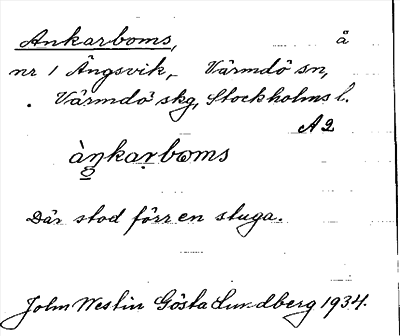 Ankarboms, å
nr 1 Ängsvik, Värmdö sn,
Värmdö skg, Stockholms l.
A2
àŋkarboms
Där stod förr en stuga.
John Westin Gösta Lundberg 1934.